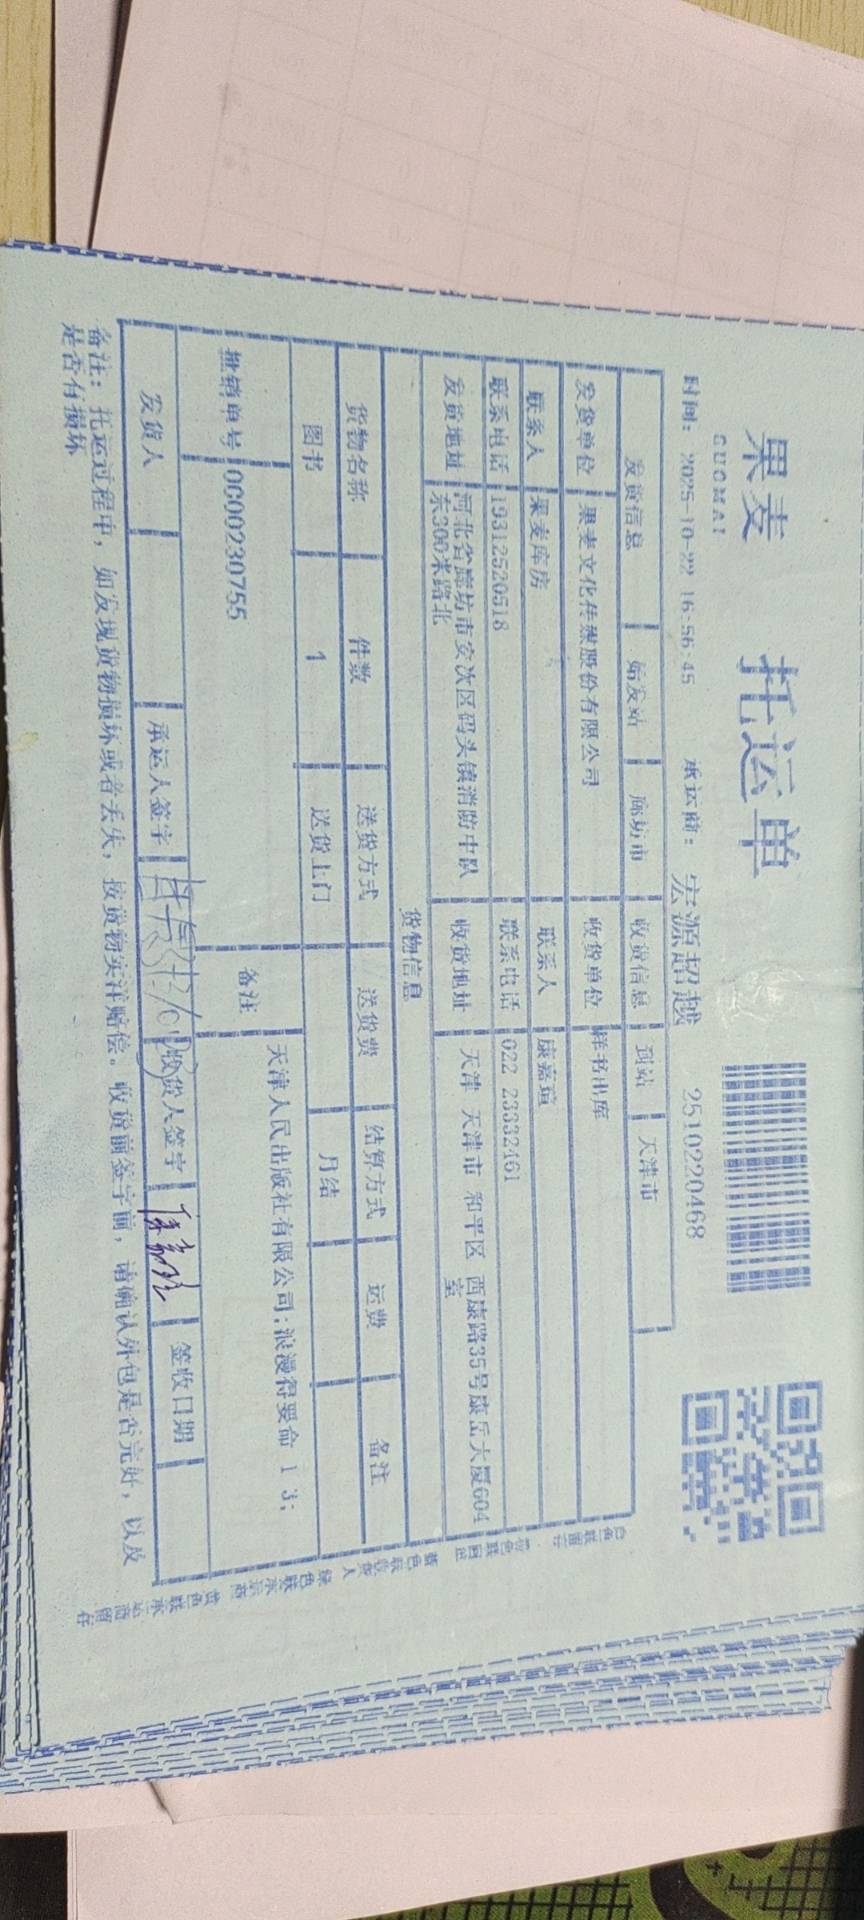 果麦
GUOMAI
托运单
时间: 2025-10-22 16:56:45 承运商: 宏源超越 2510220468
发货信息 始发站 廊坊市 收货信息 到站 天津市
发货单位 果麦文化传媒股份有限公司 收货单位 样书出库
联系人 果麦库房 联系人 康嘉瑄
联系电话 19312520518 联系电话 022 23332461
发货地址 河北省廊坊市安次区码头镇消防中队东300米路北 收货地址 天津 天津市 和平区 西康路35号康岳大厦604室
货物信息
货物名称 件数 送货方式 送货费 结算方式 运费 备注
图书 1 送货上门 月结
批销单号 0000230755 备注 天津人民出版社有限公司;浪漫得要命 1 3;
发货人 承运人签字 收货人签字 签收日期
备注: 托运过程中, 如发现货物损坏或者丢失, 按货物实洋赔偿。收货前签字前, 请确认外包是否完好, 以及
是否有损坏